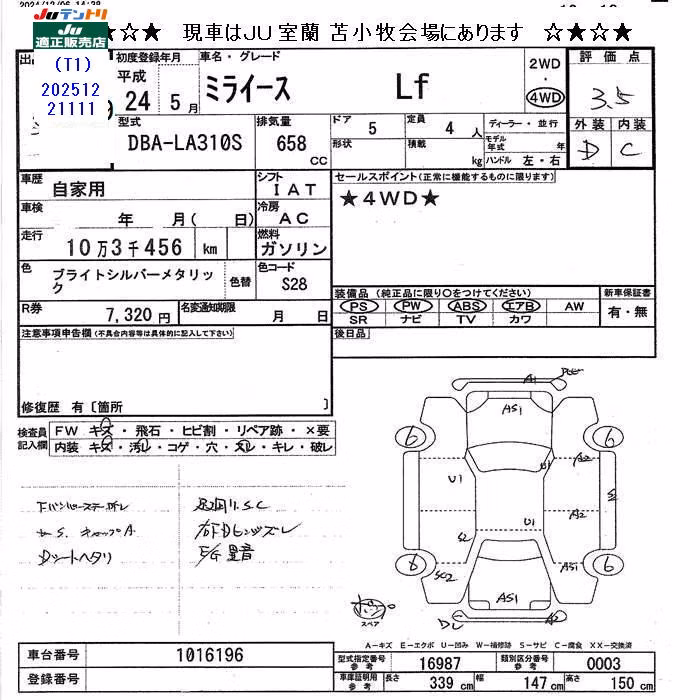 2024/12/06 14:38
Juテントリ
Ju
適正販売店
★ 現車はJU室蘭 苫小牧会場にあります ☆★☆★
(T1)
202512
21111
初度登録年月
平成
24年 5月
車名・グレード
ミライース Lf
2WD
・
4WD
評価点
3.5
型式
DBA-LA310S
排気量
658
CC
ドア
5
定員
4人
形状
積載
kg
ディーラー・並行
モデル年式 年
ハンドル 左・右
外装 内装
D C
車歴
自家用
シフト
IAT
セールスポイント(正常に機能するものに限ります)
★4WD★
車検
年 月( 日)
冷房
AC
走行
10万3千456 km
燃料
ガソリン
色
ブライトシルバーメタリック
色替
色コード
S28
装備品 (純正品に限り〇をつけてください)
新車保証書
PS PW ABS エアB AW
SR ナビ TV カワ
有・無
R券
7,320円
名変通知期限
月 日
注意事項申告欄(不具合内容等は具体的に記入して下さい)
後日品
修復歴 有〔箇所 〕
検査員
記入欄
FW キズ・飛石・ヒビ割・リペア跡・×要
内装 キズ・汚レ・コゲ・穴・スレ・キレ・破レ
S.キャップA
Dシートヘタリ
右FDレンズズレ
E/G異音
A1
AS1
6
6
U1
U1
A2
U1
A2
S2
S2
8
6
SC2
AS1
AS1
A2
スペア
A-キズ E-エクボ U-凹み W-補修跡 S-サビ C-腐食 XX-交換済
車台番号
1016196
登録番号
型式指定番号
参考
16987
類別区分番号
参考
0003
車庫証明用
参考
長さ
339 cm
幅
147 cm
高さ
150 cm